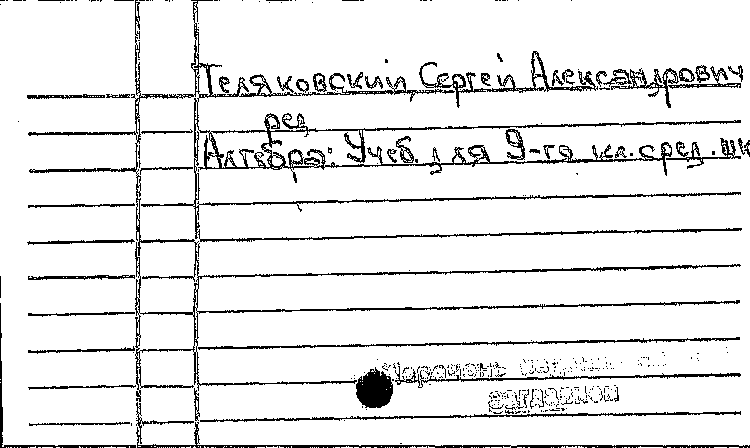 Теляковский, Сергей Александрович
ред
Алгебра: Учеб. для 9-го кл. сред. шк
заглавном